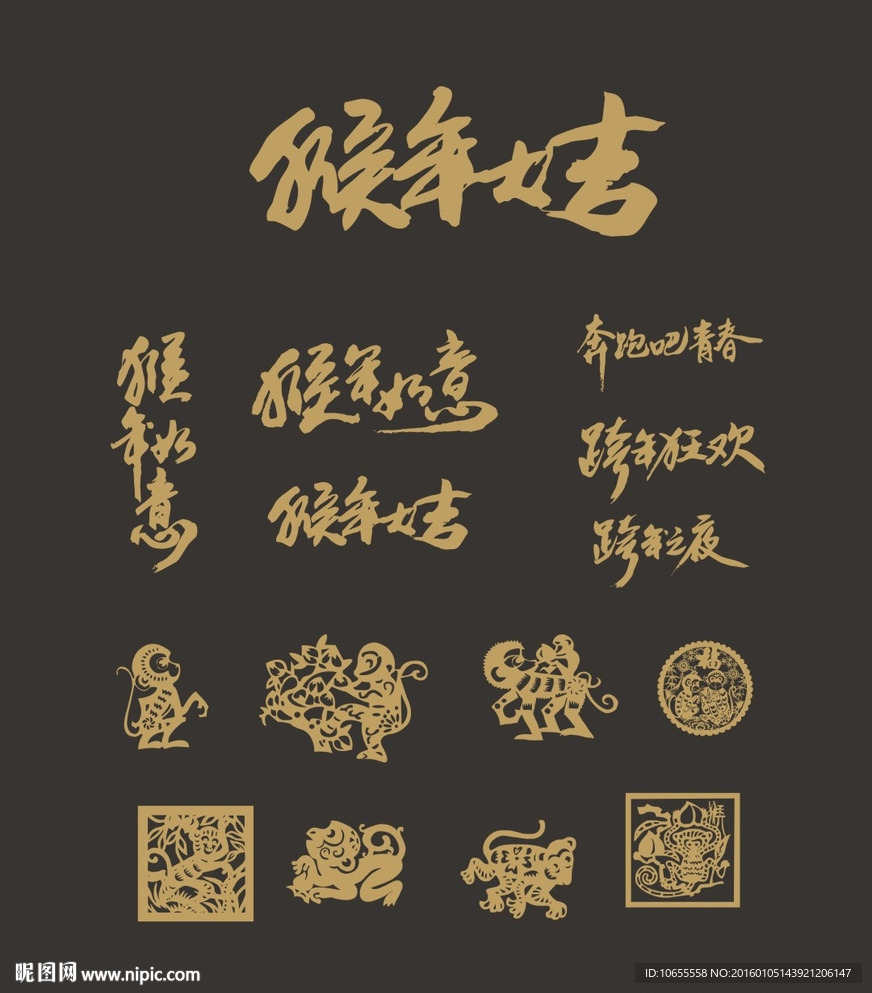 猴年大吉
猴年如意
猴年如意
猴年大吉
奔跑吧青春
跨年狂欢
跨年之夜
福
猴
昵图网 www.nipic.com
ID:10655558 NO:20160105143921206147